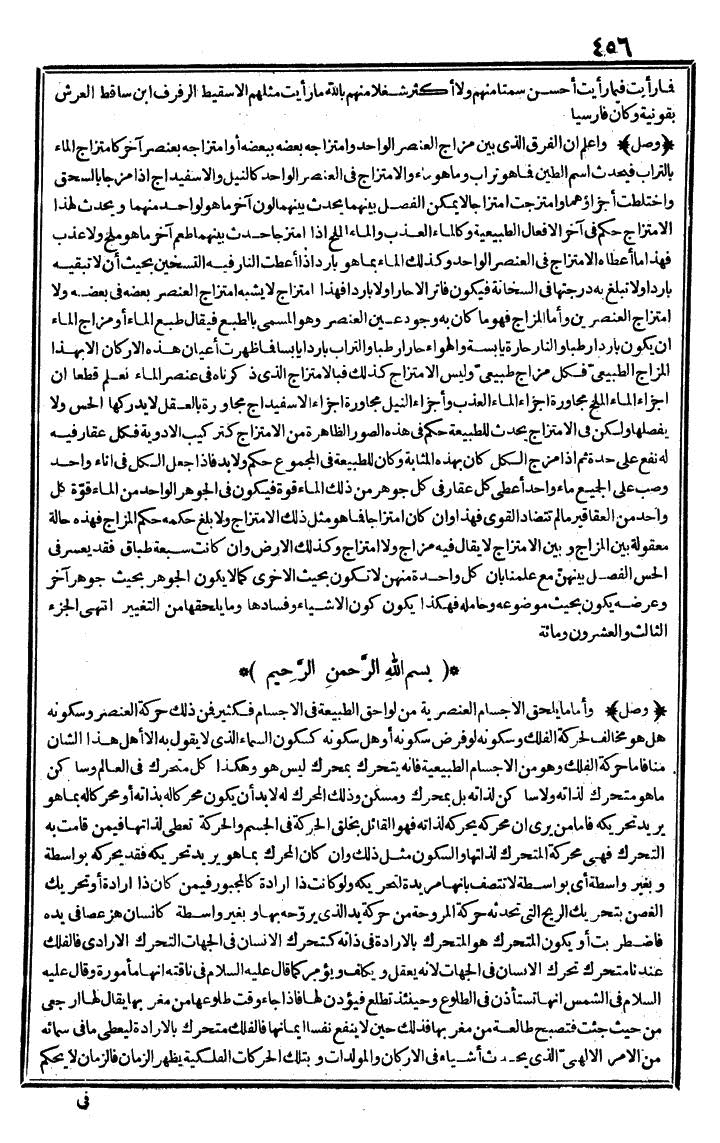 ٤٥٦
فما رأيت فيما رأيت أحسن سمتا منهم ولا أكثر شغلا منهم بالله ما رأيت مثلهم الاسقيط الرفرف ابن ساقط العرش
بقونية وكان فارسيا
﴿وصل﴾ واعلم ان الفرق الذى بين مزاج العنصر الواحد وامتزاجه بعضه ببعضه أو امتزاجه بعنصر آخر كامتزاج الماء
بالتراب فيحدث اسم الطين فاهو تراب وما هو ماء والامتزاج فى العنصر الواحد كالنيل والاسفيداج اذا مزجا بالسحق
واختلطت أجزاؤهما وامتزجت امتزاجا لا يمكن الفصل بينهما يحدث بينهما لون آخر ما هو لواحد منهما ويحدث لهذا
الامتزاج حكم فى آخر الافعال الطبيعية وكالماء العذب والماء الملح اذا امتزجا حدث بينهما طعم آخر ما هو ملح ولا عذب
فهذا ما أعطاه الامتزاج فى العنصر الواحد وكذلك الماء بما هو بارد اذا أعطت النار فيه التسخين بحيث أن لا تبقيه
باردا ولا تبلغ به درجتها فى السخانة فيكون فاترا لا حارا ولا باردا فهذا امتزاج لا يشبه امتزاج العنصر بعضه فى بعضه ولا
امتزاج العنصرين وأما المزاج فهو ما كان به وجود عين العنصر وهو المسمى بالطبع فيقال طبع الماء أو مزاج الماء
ان يكون باردا رطبا والنار حارة يابسة والهواء حارا رطبا والتراب باردا يابسا فما ظهرت أعيان هذه الاركان الا بهذا
المزاج الطبيعىّ فكل مزاج طبيعىّ وليس الامتزاج كذلك فبالامتزاج الذى ذكرناه فى عنصر الماء نعلم قطعا ان
اجزاء الماء الملح مجاورة اجزاء الماء العذب وأجزاء النيل مجاورة اجزاء الاسفيداج مجاورة بالعقل لا يدركها الحس ولا
يفصلها ولكن فى الامتزاج يحدث للطبيعة حكم فى هذه الصور الظاهرة من الامتزاج كتركيب الادوية فكل عقار فيه
له نفع على حدة ثم اذا مزج الكل كان بهذه المثابة وكان للطبيعة فى المجموع حكم ولا بد فاذا جعل الكل فى اناء واحد
وصب على الجميع ماء واحد أعطى كل عقار فى كل جوهر من ذلك الماء قوة فيكون فى الجوهر الواحد من الماء قوّة كل
واحد من العقاقير ما لم تتضاد القوى فهذا وان كان امتزاجا فما هو مثل ذلك الامتزاج ولا بلغ حكمه حكم المزاج فهذه حالة
معقولة بين المزاج وبين الامتزاج لا يقال فيه مزاج ولا امتزاج وكذلك الارض وان كانت سبعة طباق فقد يعسر فى
الحس الفصل بينهنّ مع علمنا بان كل واحدة منهن لا تكون بحيث الاخرى كما لا يكون الجوهر بحيث جوهر آخر
وعرضه يكون بحيث موضوعه وحامله فهكذا يكون كون الاشياء وفسادها وما يلحقها من التغيير انتهى الجزء
الثالث والعشرون ومائة
*( بسم الله الرَّحمن الرَّحيم )*
﴿وصل﴾ وأما ما يلحق الاجسام العنصرية من لواحق الطبيعة فى الاجسام فكثير فمن ذلك حركة العنصر وسكونه
هل هو مخالف لحركة الفلك وسكونه لو فرض سكونه أو هل سكونه كسكون السماء الذى لا يقول به الا أهل هذا الشان
منا فاما حركة الفلك وهو من الاجسام الطبيعية فانه يتحرك بمحرك ليس هو وهكذا كل متحرك فى العالم وساكن
ما هو متحرك لذاته ولا ساكن لذاته بل بمحرك ومسكن وذلك المحرك له لا بد أن يكون محركا له بذاته أو محركا له بما هو
يريد تحريكه فاما من يرى ان محركه يحركه لذاته فهو القائل بخلق الحركة فى الجسم والحركة تعطى لذاتها فيمن قامت به
التحرك فهى محركة المتحرك لذاتها والسكون مثل ذلك وان كان المحرك بما هو يريد تحريكه فقد يحركه بواسطة
وبغير واسطة أى بواسطة لا تتصف بانها مريدة لتحريكه ولو كانت ذا ارادة كالمجبور فيمن كان ذا ارادة أو تحريك
الغصن بتحريك الريح التى تحدثه حركة المروحة من حركة يد الذى يروّحه بها وبغير واسطة كانسان هز عصا فى يده
فاضطربت أو يكون المتحرك هو المتحرك بالارادة فى ذاته كتحرك الانسان فى الجهات التحرك الارادى فالفلك
عندنا متحرك تحرك الانسان فى الجهات لانه يعقل ويكلف ويؤمر كما قال عليه السلام فى ناقته انها مأمورة وقال عليه
السلام فى الشمس انها تستأذن فى الطلوع وحينئذ تطلع فيؤذن لها فاذا جاء وقت طلوعها من مغربها يقال لها ارجعى
من حيث جئت فتصبح طالعة من مغربها فذلك حين لا ينفع نفسا ايمانها فالفلك متحرك بالارادة ليعطى ما فى سمائه
من الامر الالهىّ الذى يحدث أشياء فى الاركان والمولدات وبتلك الحركات الفلكية يظهر الزمان فالزمان لا يحكم
فى